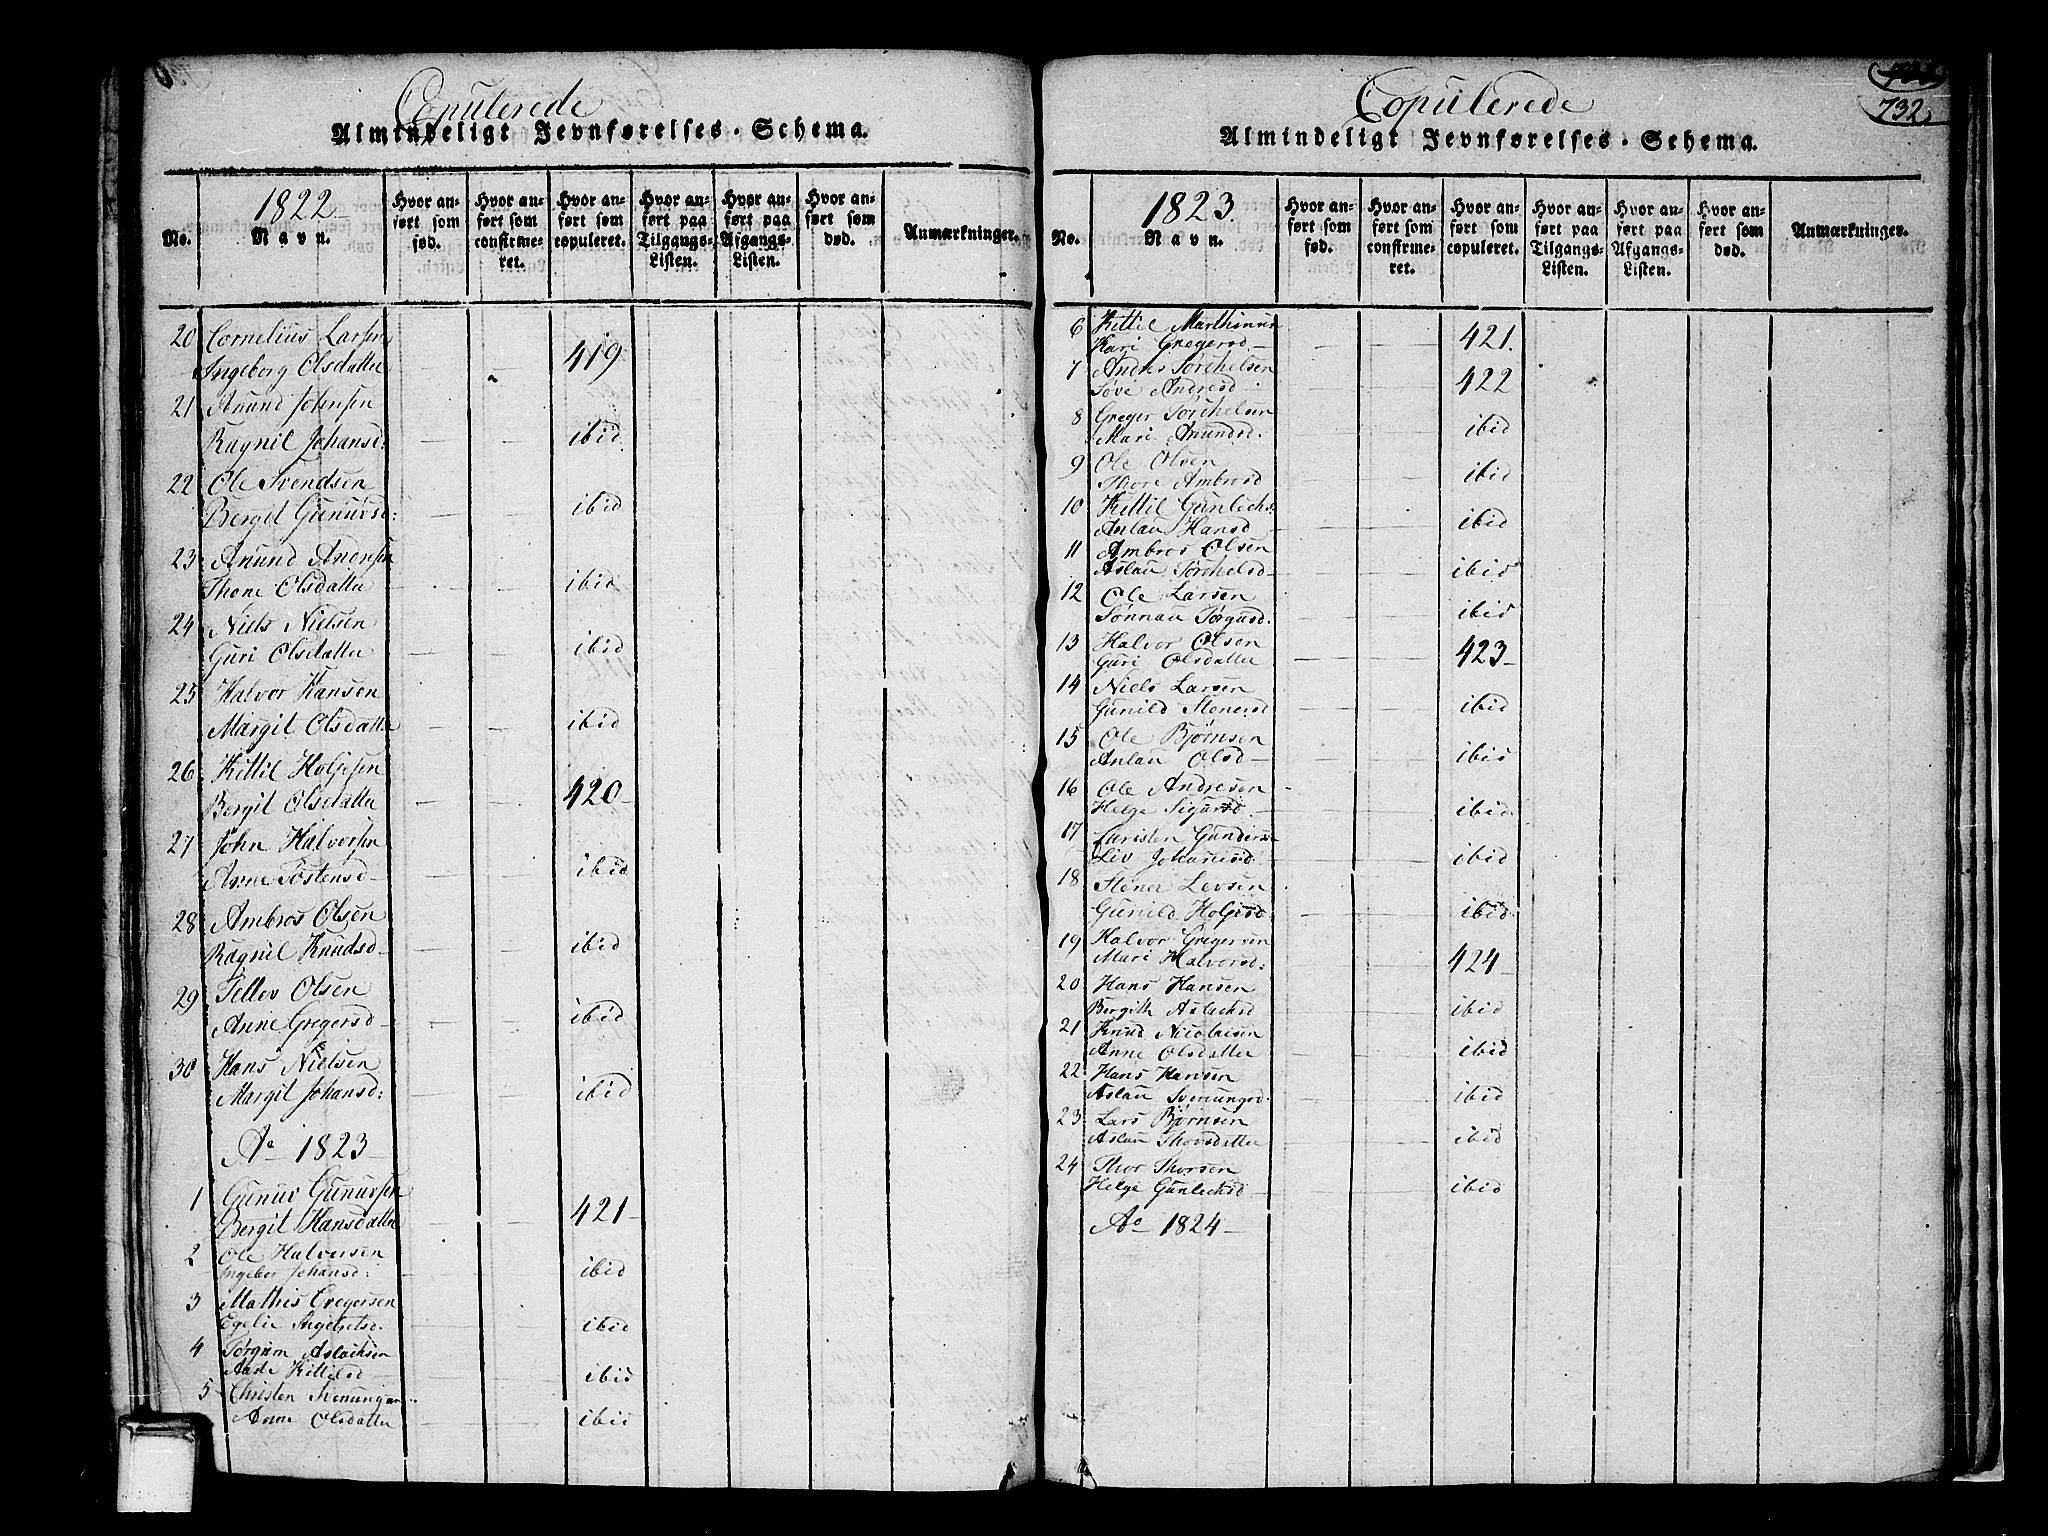 Copulerede
Almindeligt Jevnførelses-Schema.
No.
1822
Navn.
Hvor anført som fød.
Hvor anført som confirmeret.
Hvor anført som copuleret.
Hvor anført paa Tilgangs-Listen.
Hvor anført paa Afgangs-Listen.
Hvor anført som død.
Anmærkninger.
20 Cornelius Larsen
Ingeborg Olsdatter 419
21 Anund Johnsen
Ragnil Johansd: ibid
22 Ole Svendsen
Bergit Gunuvsd: ibid
23 Anund Andrsen
Thone Olsdatter ibid
24 Niels Nielsen
Guri Olsdatter ibid
25 Halvor Hansen
Margit Olsdatter ibid
26 Kittil Holjesen
Bergit Olsdatter 420
27 John Halvorsen
Anne Tostensd ibid
28 Ambros Olsen
Ragnil Knudsd ibid
29 Tellev Olsen
Anne Gregersd ibid
30 Hans Nielsen
Margit Johansd: ibid
Ao 1823
1 Gunuv Gunuvsen
Bergit Hansdatter 421
2 Ole Halvorsen
Ingebor Johansd: ibid
3 Mathis Gregersen
Egelie ibid
4 Torgrim Aslachsen
Aase Kittelsd ibid
5 Christen
Anne Olsdatter ibid
732
Copulerede
Almindeligt Jevnførelses-Schema.
No.
1823.
Navn.
Hvor anført som fød.
Hvor anført som confirmeret.
Hvor anført som copuleret.
Hvor anført paa Tilgangs-Listen.
Hvor anført paa Afgangs-Listen.
Hvor anført som død.
Anmærkninger.
6 Kittil
Kari Gregersd. 421.
7 Andres Torchelsen
Tove Andresd 422
8 Greger Torchelsen
Mari Anundsd. ibid
9 Ole Olsen
Thore Ambrosd ibid
10 Kittil Gunlechs:
Anlau Hansd ibid
11 Ambros Olsen
Aslau Torchelsd ibid
12 Ole Larsen
Sønnau ibid
13 Halvor Olsen
Guri Olsdatter 423
14 Niels Larsen
Gunild Stenersd ibid
15 Ole Bjørnsen
Anlau Olsd ibid
16 Ole Andresen
Helge Sigursd. ibid
17 Christen Gunders
Liv Johannesd. ibid
18 Stener Levsen
Gunild Holjesd: ibid
19 Halvor Gregersen
Mari Halvorsd: 424
20 Hans Hansen
Bergith Aslachsd ibid
21 Knud Nicolaisen
Anne Olsdatter ibid
22 Hans Hansen
Aslau Svenungsd. ibid
23 Lars Bjørnsen
Aslau Thorsdatter ibid
24 Thor Thorsen
Helge Gunlechsd ibid
Ao 1824